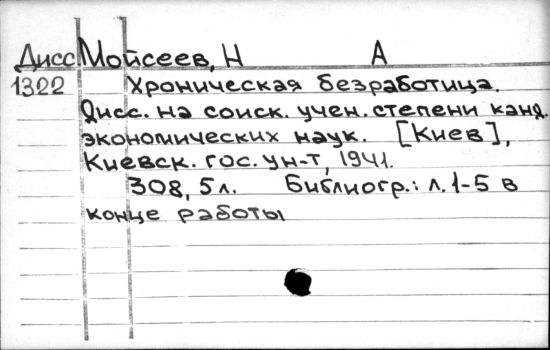 Дисс Мойсеев, Н А
1322 Хроническая безработица.
Дисс. на соиск. учен. степени канд.
экономических наук. [Киев],
Киевск. гос. ун-т, 1941.
308, 5 л. Библиогр.: л. 1-5 в
конце работы